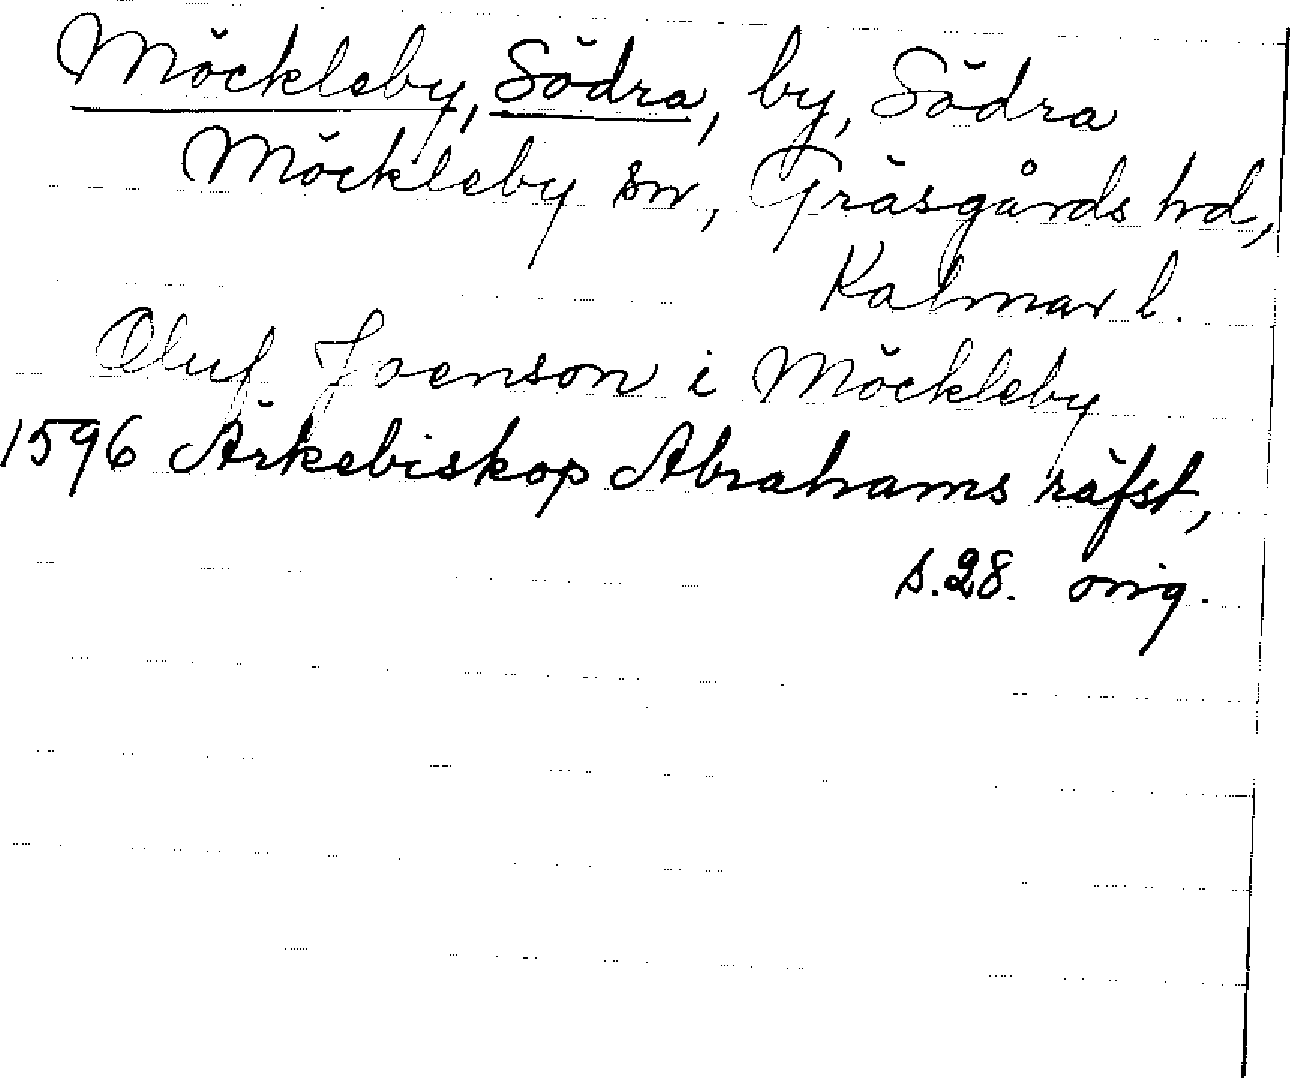 Möckleby, Södra, by, Södra
Möckleby sn, Gräsgårds hd,
Kalmar l.
Oluf Joenson i Möckleby
1596 Ärkebiskop Abrahams räfst,
s. 28. orig.